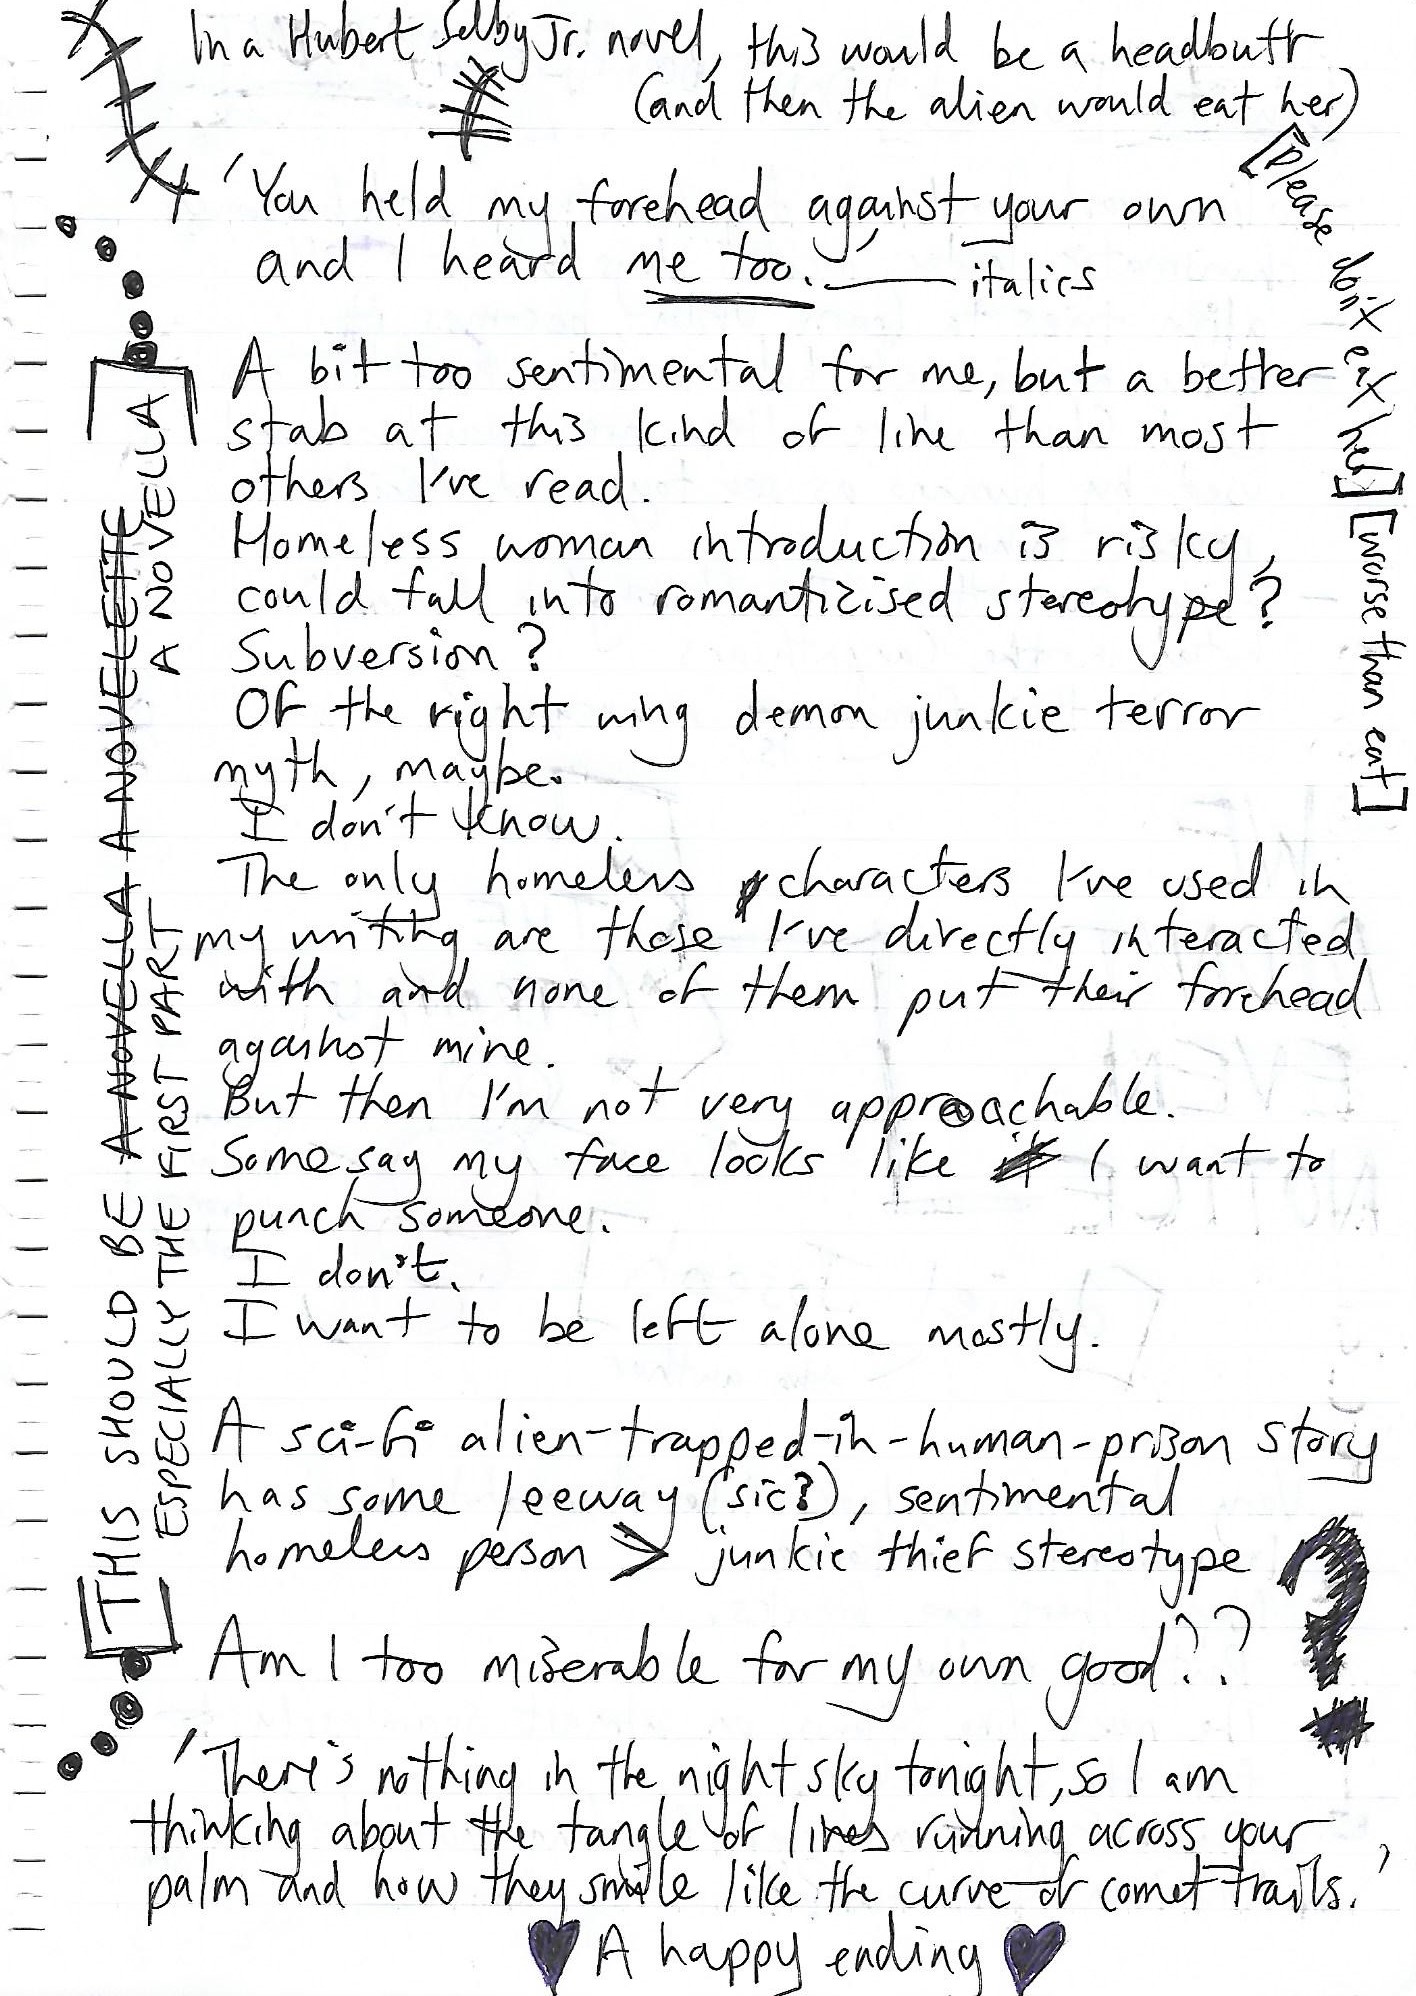 In a Hubert Selby Jr. novel, this would be a headbutt
(and then the alien would eat her)
[please don't eat her] [worse than eat]
'You held my forehead against your own
and I heard me too.' — italics
A bit too sentimental for me, but a better
stab at this kind of line than most
others I've read.
Homeless woman introduction is risky,
could fall into romanticised stereotype?
Subversion?
Of the right wing demon junkie terror
myth, maybe.
I don't know.
The only homeless characters I've used in
my writing are those I've directly interacted
with and none of them put their forehead
against mine.
But then I'm not very approachable.
Some say my face looks like I want to
punch someone.
I don't.
I want to be left alone mostly.
A sci-fi alien-trapped-in-human-prison story
has some leeway (sic?), sentimental
homeless person > junkie thief stereotype
Am I too miserable for my own good??
?
'There's nothing in the night sky tonight, so I am
thinking about the tangle of lines running across your
palm and how they smile like the curve of comet trails.'
♥ A happy ending ♥
[THIS SHOULD BE A NOVELLA A NOVELETTE
A NOVELLA]
ESPECIALLY THE FIRST PART